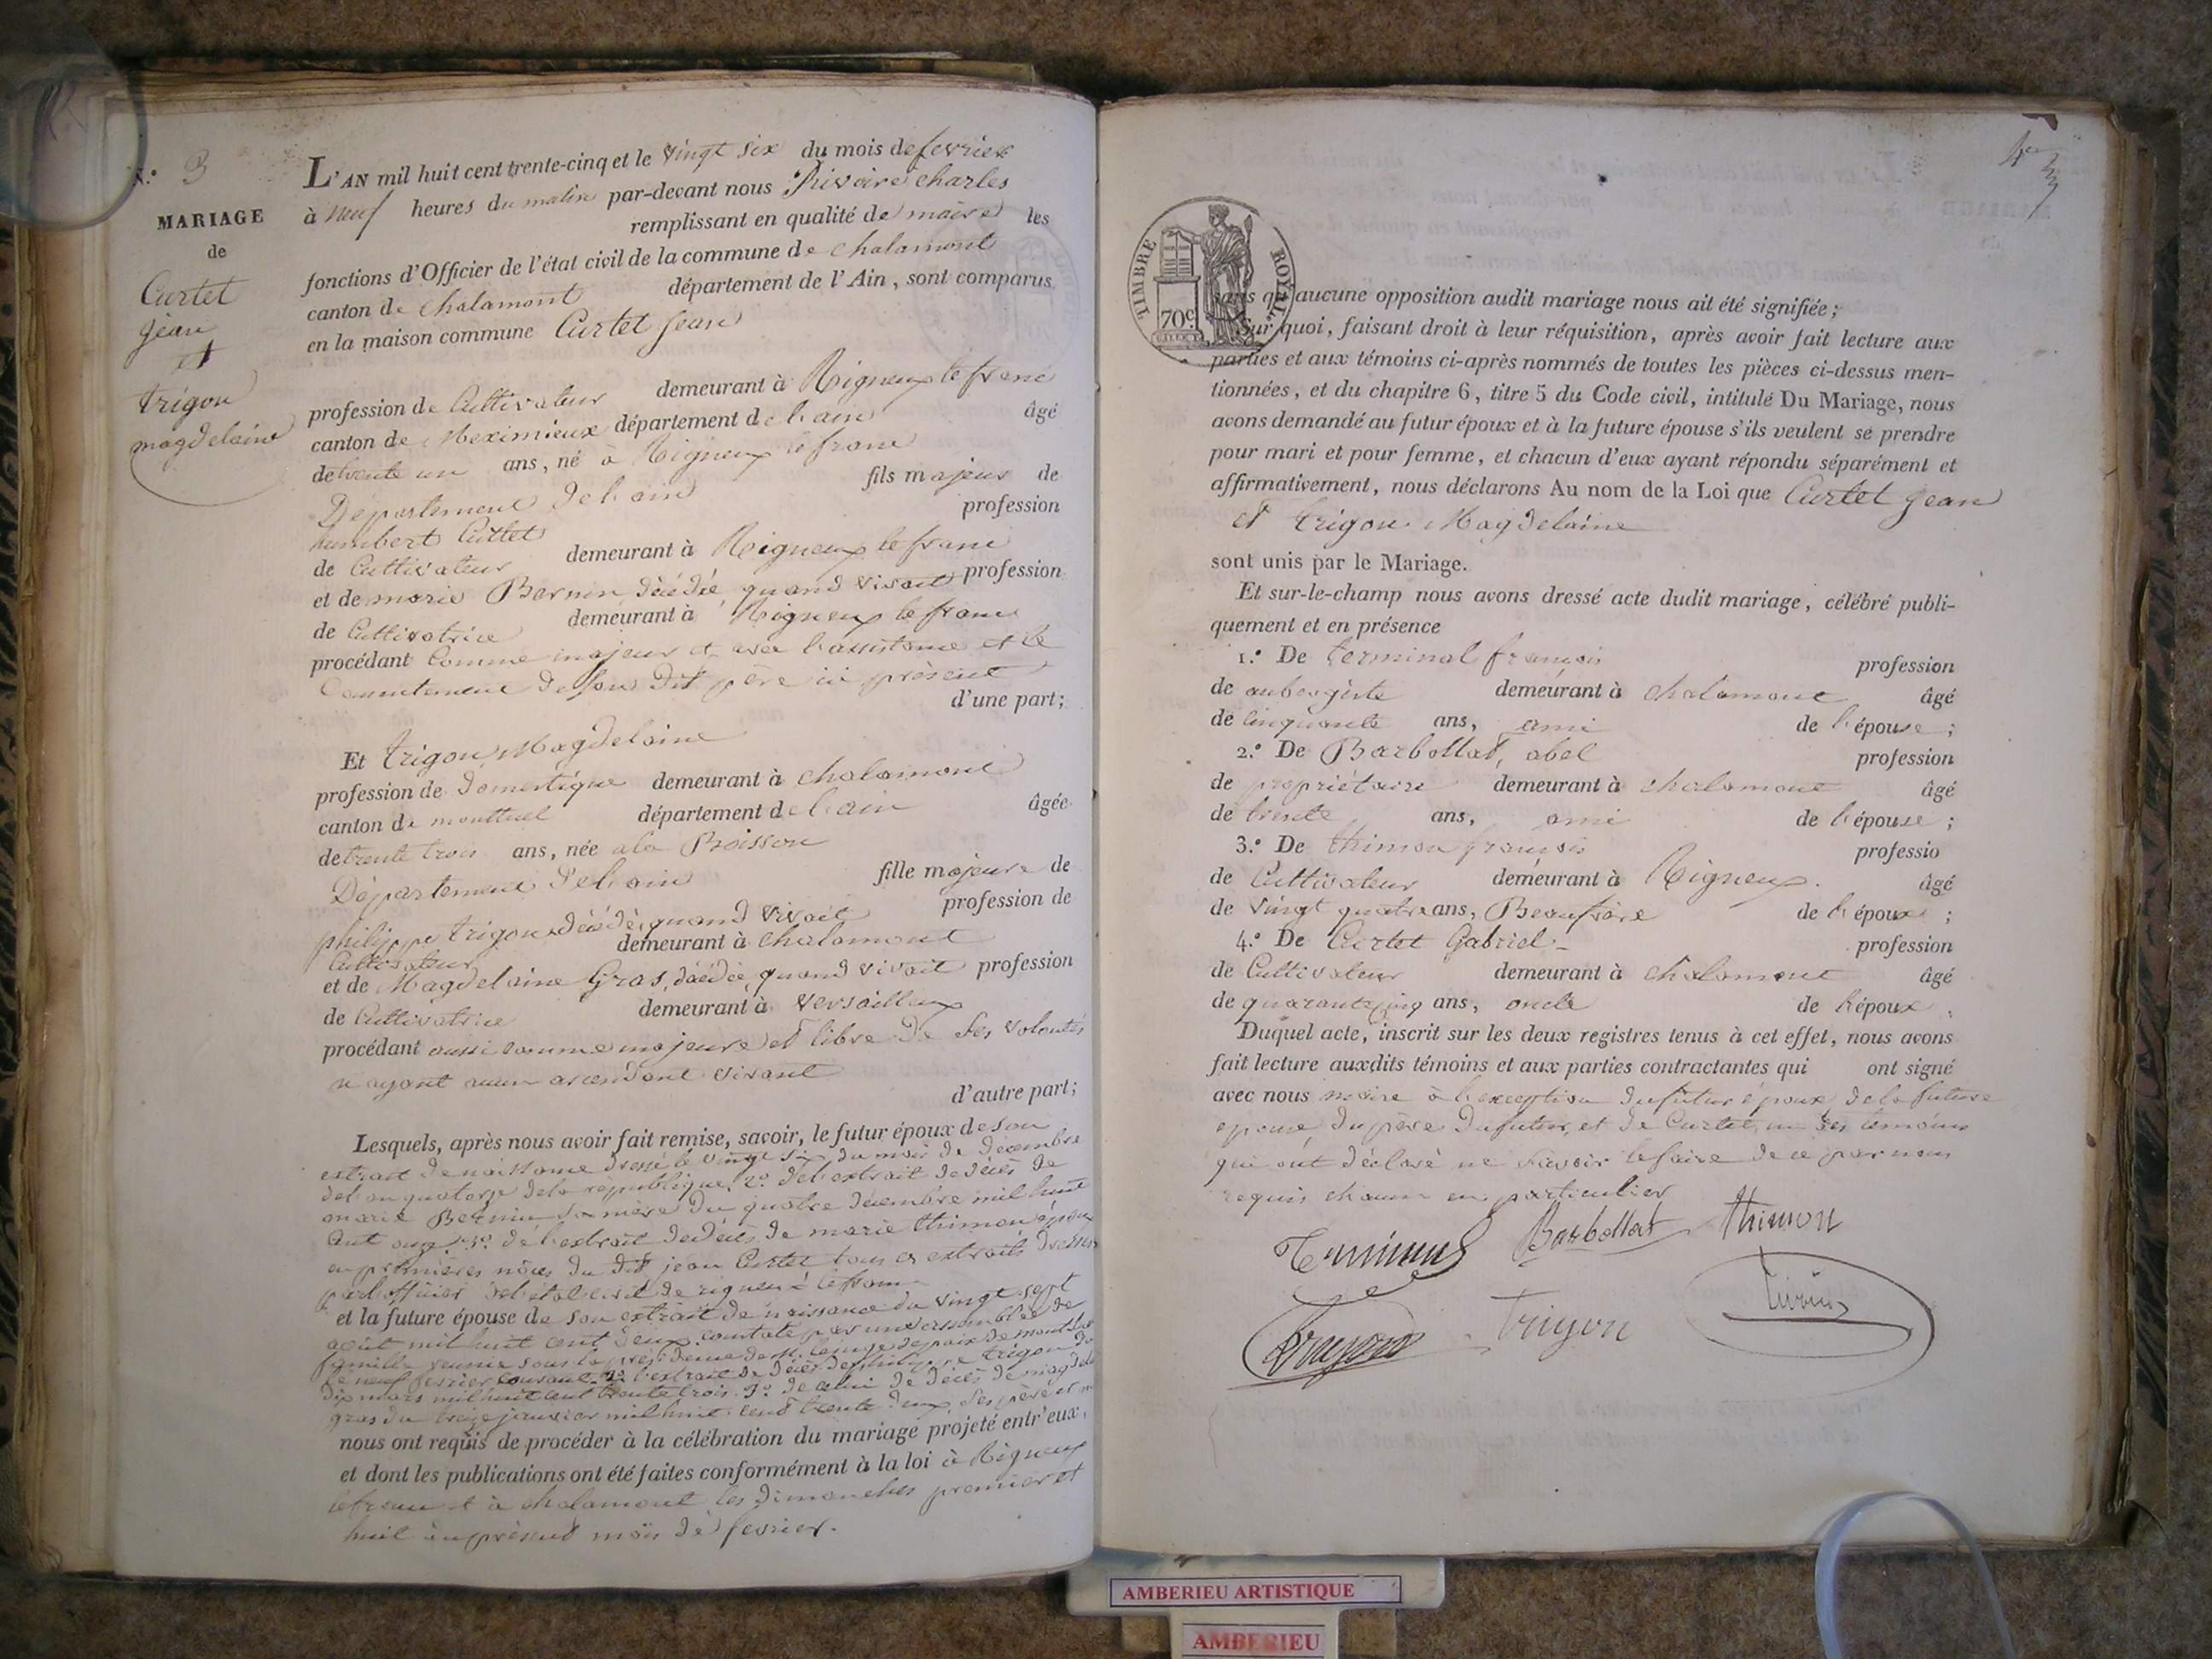 N.º 3
MARIAGE
de
Curtet
jean
et
trigon
magdelaine
L'AN mil huit cent trente-cinq et le vingt six du mois de fevrier
à neuf heures du matin par-devant nous Rivoire charles
remplissant en qualité de maire les
fonctions d'Officier de l'état civil de la commune de chalamont
canton de chalamont département de l'Ain, sont comparus
en la maison commune Curtet jean
profession de Cultivateur demeurant à Rigneux le franc
canton de Meximieux département de l'ain âgé
de trente un ans, né à Rigneux le franc
Département de l'ain fils majeur de
humbert Curtet profession
de Cultivateur demeurant à Rigneux le franc
et de marie Bernin décédée quand vivait profession
de Cultivatrice demeurant à Rigneux le franc
procédant comme majeur et avec l'assistance et le
Consentement de son dit père ici présent
d'une part;
Et trigon Magdelaine
profession de domestique demeurant à chalamont
canton de montluel département de l'ain âgée
de trente trois ans, née a la Boisson
Département de l'ain fille majeure de
philippe trigon, décédé, quand vivait profession de
Cultivateur demeurant à chalamont
et de Magdelaine Gras, décédée, quand vivait profession
de Cultivatrice demeurant à versailleux
procédant aussi comme majeure et libre de ses volontés
n'ayant aucun ascendant vivant
d'autre part;
Lesquels, après nous avoir fait remise, savoir, le futur époux de son
extrait de naissance dressé le vingt six du mois de décembre
de l'an quatorze de la république, 2º de l'extrait de décès de
marie Bernin sa mère du quatre décembre mil huit
cent onze 3º de l'extrait de décès de marie thimon épouse
en premières nôces du dit jean Curtet tous ces extraits dressés
par l'officier de l'état civil de rigneux le franc
et la future épouse de son extrait de naissance du vingt sept
août mil huit cent deux, constaté par une assemblée de
famille reunie sous la présidence de M. le juge de paix de montluel
le neuf fevrier courant. 2º l'extrait de décès de philippe trigon du
dix mars mil huit cent trente trois. 3º de celui de décès de magdel
gras du treize janvier mil huit cent trente deux, ses père et m
nous ont requis de procéder à la célébration du mariage projeté entr'eux,
et dont les publications ont été faites conformément à la loi à Rigneux
lefranc et à chalamont les dimanches premier et
huit du présent mois de fevrier.
TIMBRE ROYAL
70c
sans qu'aucune opposition audit mariage nous ait été signifiée;
Sur quoi, faisant droit à leur réquisition, après avoir fait lecture aux
parties et aux témoins ci-après nommés de toutes les pièces ci-dessus men-
tionnées, et du chapitre 6, titre 5 du Code civil, intitulé Du Mariage, nous
avons demandé au futur époux et à la future épouse s'ils veulent se prendre
pour mari et pour femme, et chacun d'eux ayant répondu séparément et
affirmativement, nous déclarons Au nom de la Loi que Curtet jean
et trigon Magdelaine
sont unis par le Mariage.
Et sur-le-champ nous avons dressé acte dudit mariage, célébré publi-
quement et en présence
1.º De terminal françois profession
de aubergiste demeurant à chalamont âgé
de cinquante ans, ami de l'épouse;
2.º De Barbollat, abel profession
de propriétaire demeurant à chalamont âgé
de trente ans, ami de l'épouse;
3.º De thimon françois professio
de Cultivateur demeurant à Rigneux. âgé
de vingt quatre ans, Beaufrère de l'époux;
4.º De Curtet Gabriel profession
de Cultivateur demeurant à chalamont âgé
de quarante cinq ans, oncle de l'époux,
Duquel acte, inscrit sur les deux registres tenus à cet effet, nous avons
fait lecture auxdits témoins et aux parties contractantes qui ont signé
avec nous maire à l'exception du futur époux de la future
epouse du père du futur, et de Curtet un des temoins
qui ont déclaré ne savoir le faire de ce par nous
requis chacun en particulier
Terminal Barbollat thimon
trigon Rivoire
AMBERIEU ARTISTIQUE
AMBERIEU